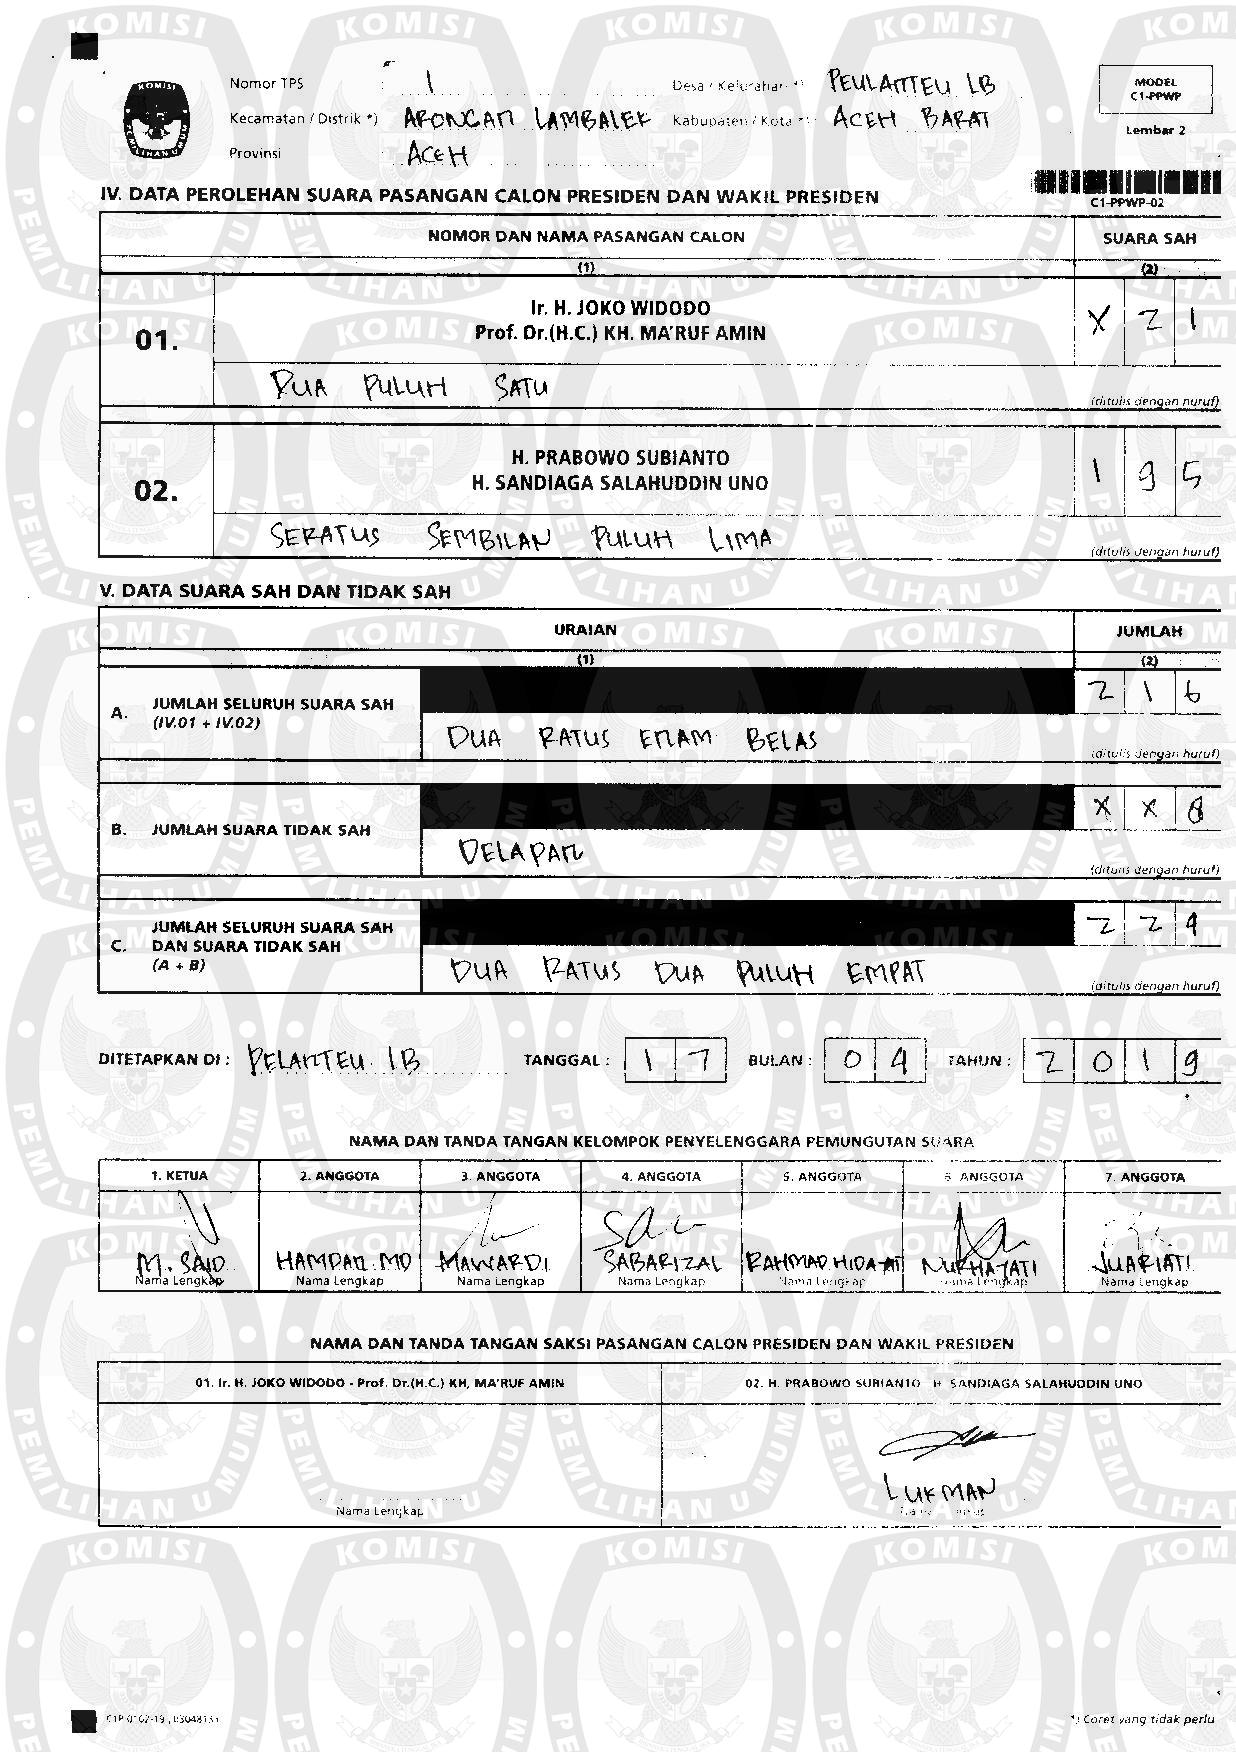 KOMISI
PEMILIHAN UMUM
Nomor TPS : 1
Desa / Kelurahan *) : PEULANTEU LB
Kecamatan / Distrik *) : ARONGAN LAMBALEK
Kabupaten / Kota *) : ACEH BARAT
Provinsi : ACEH
MODEL
C1-PPWP
Lembar 2
IV. DATA PEROLEHAN SUARA PASANGAN CALON PRESIDEN DAN WAKIL PRESIDEN
C1-PPWP-02
NOMOR DAN NAMA PASANGAN CALON SUARA SAH
(1) (2)
01. Ir. H. JOKO WIDODO
Prof. Dr.(H.C.) KH. MA'RUF AMIN
X 2 1
DUA PULUH SATU
(ditulis dengan huruf)
02. H. PRABOWO SUBIANTO
H. SANDIAGA SALAHUDDIN UNO
1 9 5
SERATUS SEMBILAN PULUH LIMA
(ditulis dengan huruf)
V. DATA SUARA SAH DAN TIDAK SAH
URAIAN JUMLAH
(1) (2)
A. JUMLAH SELURUH SUARA SAH
(IV.01 + IV.02)
2 1 6
DUA RATUS ENAM BELAS
(ditulis dengan huruf)
B. JUMLAH SUARA TIDAK SAH
X X 8
DELAPAN
(ditulis dengan huruf)
C. JUMLAH SELURUH SUARA SAH
DAN SUARA TIDAK SAH
(A + B)
2 2 4
DUA RATUS DUA PULUH EMPAT
(ditulis dengan huruf)
DITETAPKAN DI : PELANTEU LB TANGGAL : 1 7 BULAN : 0 4 TAHUN : 2 0 1 9
NAMA DAN TANDA TANGAN KELOMPOK PENYELENGGARA PEMUNGUTAN SUARA
1. KETUA 2. ANGGOTA 3. ANGGOTA 4. ANGGOTA 5. ANGGOTA 6. ANGGOTA 7. ANGGOTA
M. SAID HAMDAN. MD MAWARDI SABARIZAL RAHMAD HIDAYAT NURHAYATI JUARIATI
Nama Lengkap Nama Lengkap Nama Lengkap Nama Lengkap Nama Lengkap Nama Lengkap Nama Lengkap
NAMA DAN TANDA TANGAN SAKSI PASANGAN CALON PRESIDEN DAN WAKIL PRESIDEN
01. Ir. H. JOKO WIDODO - Prof. Dr.(H.C.) KH, MA'RUF AMIN
02. H. PRABOWO SUBIANTO - H. SANDIAGA SALAHUDDIN UNO
LUKMAN
Nama Lengkap Nama Lengkap
*) Coret yang tidak perlu